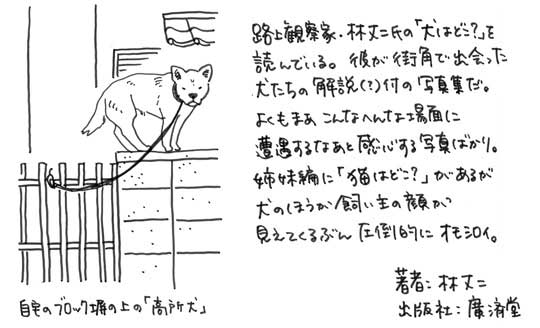 路上観察家・林丈二氏の「犬はどこ?」を
読んでいる。彼が街角で出会った
犬たちの解説(?)付の写真集だ。
よくもまあこんなへんな場面に
遭遇するなあと感心する写真ばかり。
姉妹編に「猫はどこ?」があるが
犬のほうが飼い主の顔が
見えてくるぶん圧倒的にオモシロイ。
著者:林丈二
出版社:廣済堂
自宅のブロック塀の上の「高所犬」